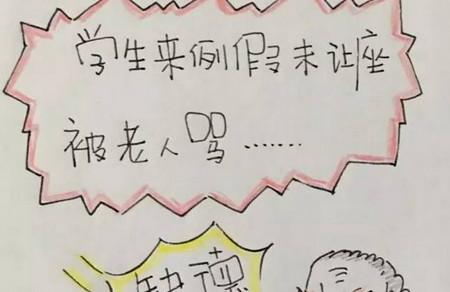 学生来例假未让座
被老人骂……
缺德